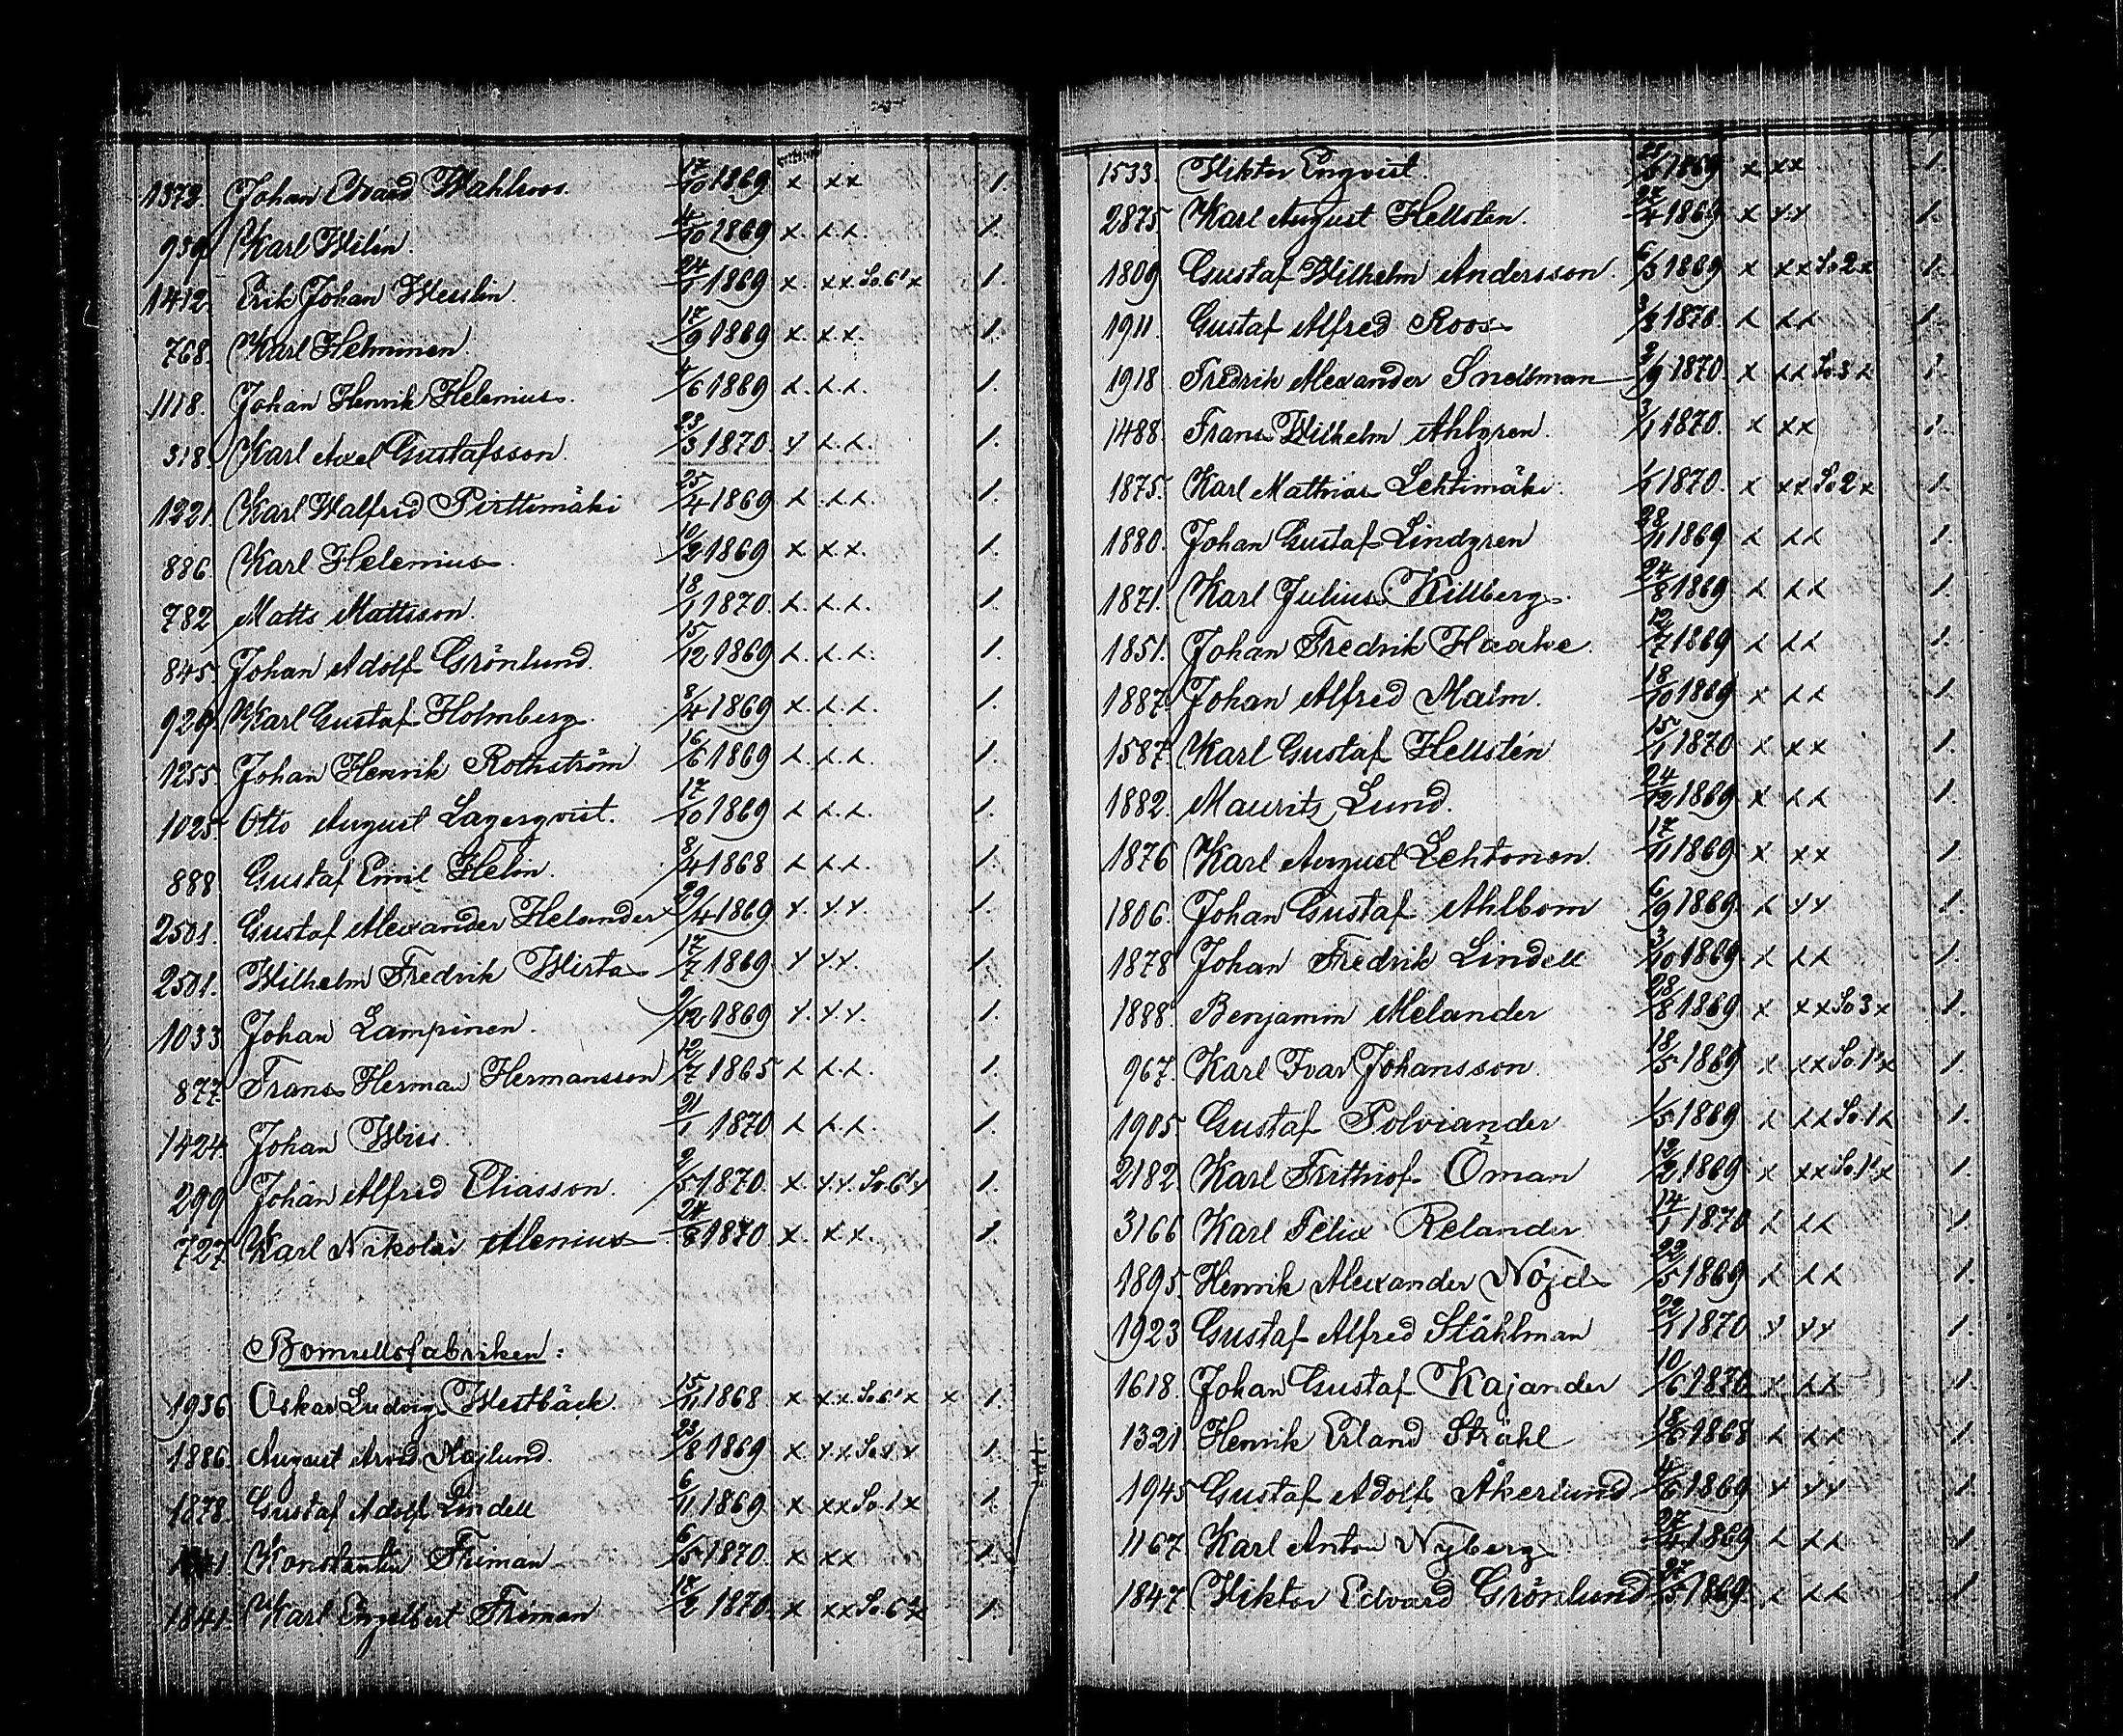 1373. Johan Evard Wahlroos. 17/10 1869 x xx 1.
939. Karl Wilén. 4/10 1869 x. x.x. 1.
1412. Erik Johan Wesslin. 24/1 1869 x. xx. So. 6' x 1.
768. Karl Helminen. 17/9 1869 x. x.x. 1.
1118. Johan Henrik Helenius. 4/6 1869 x. x.x. 1.
318. Karl Axel Gustafsson. 23/3 1870. x x.x. 1.
1221. Karl Walfrid Pirttimäki 25/4 1869 x. x.x. 1.
886. Karl Helenius. 10/2 1869 x. x.x. 1.
782 Matts Mattsson. 18/1 1870. x. x.x. 1.
845. Johan Adolf Grönlund. 15/12 1869 x. x.x. 1.
929. Karl Gustaf Holmberg. 8/4 1869 x. x.x. 1.
1255. Johan Henrik Rothström 16/6 1869 x. x.x. 1.
1025. Otto August Lagerqvist. 17/10 1869 x x.x. 1.
888 Gustaf Emil Helin. 8/4 1868 x x.x. 1.
2501. Gustaf Alexander Helander 29/4 1869 x. x.x. 1.
2501. Wilhelm Fredrik Wirta 17/7 1869 x x.x. 1.
1033 Johan Lampinen. 9/12 1869 x. x.x. 1.
877. Frans Herman Hermansson 12/7 1865 x x.x. 1.
1424. Johan Wiss. 21/1 1870 x x.x. 1.
299 Johan Alfred Eliasson. 2/5 1870. x. x.x. So. 6' x 1.
727. Karl Nikolai Alenius 24/8 1870 x. x.x. 1.
Bomullsfabriken:
1936 Oskar Ludvig Westbäck 15/11 1868 x x.x. So. 6' x x 1.
1886. August Arvid Majlund. 23/8 1869 x. x.x So x 1.
1878. Gustaf Adolf Lindell 6/11 1869 x xx So. 1 x 1.
1841 Konstantin Friman 6/5 1870. x xx 1.
1841. Karl Engelbert Friman 17/2 1870. x xx So. 6' x 1.
1533. Wiktor Enqvist. 1869 x xx 1.
2875 Karl August Hellsten. 22/4 1869 x x.x 1.
1809 Gustaf Wilhelm Andersson. 6/3 1869 x xx So. 2 x 1.
1911. Gustaf Alfred Roos 1870. x xx 1.
1918. Fredrik Alexander Snellman 2/9 1870. x xx So. 3 x 1.
1488. Frans Wilhelm Ahlgren. 3/1 1870. x xx 1.
1875. Karl Mathias Lehtimäki. 1/1 1870. x xx So 2 x 1.
1880. Johan Gustaf Lindgren 28/11 1869 x xx 1.
1871. Karl Julius Killberg. 24/8 1869 x xx 1.
1851. Johan Fredrik Haake. 12/7 1869 x xx 1.
1887 Johan Alfred Malm. 18/10 1869 x xx 1.
1587 Karl Gustaf Hellstén 15/1 1870 x xx 1.
1882. Mauritz Lund. 24/12 1869 x xx 1.
1876 Karl August Lehtonen. 17/11 1869 x xx 1.
1806. Johan Gustaf Ahlbom 6/9 1869. x xx 1.
1878 Johan Fredrik Lindell 3/10 1869 x xx 1.
1888. Benjamin Melander 28/8 1869 x xx So 3 x 1.
967. Karl Ivar Johansson. 18/5 1869 x xx So. 1' x 1.
1905. Gustaf Polviander 1/5 1869 x xx So. 1 x 1.
2182. Karl Frithiof Öman 12/2 1869 x xx So. 1' x 1.
3166 Karl Felix Relander 14/1 1870 x xx 1.
1895. Henrik Alexander Nöjd 22/5 1869 x xx 1.
1923 Gustaf Alfred Ståhlman 22/1 1870 x xx 1.
1618. Johan Gustaf Kajander 10/6 1870 x xx 1.
1321 Henrik Erland Stråhl 18/6 1868 x xx 1.
1945 Gustaf Adolf Åkerlund 1869 x xx 1.
1167 Karl Anton Nyberg 27/4 1869 x xx 1.
1847 Wiktor Edvard Grönlund 1869. x xx 1.